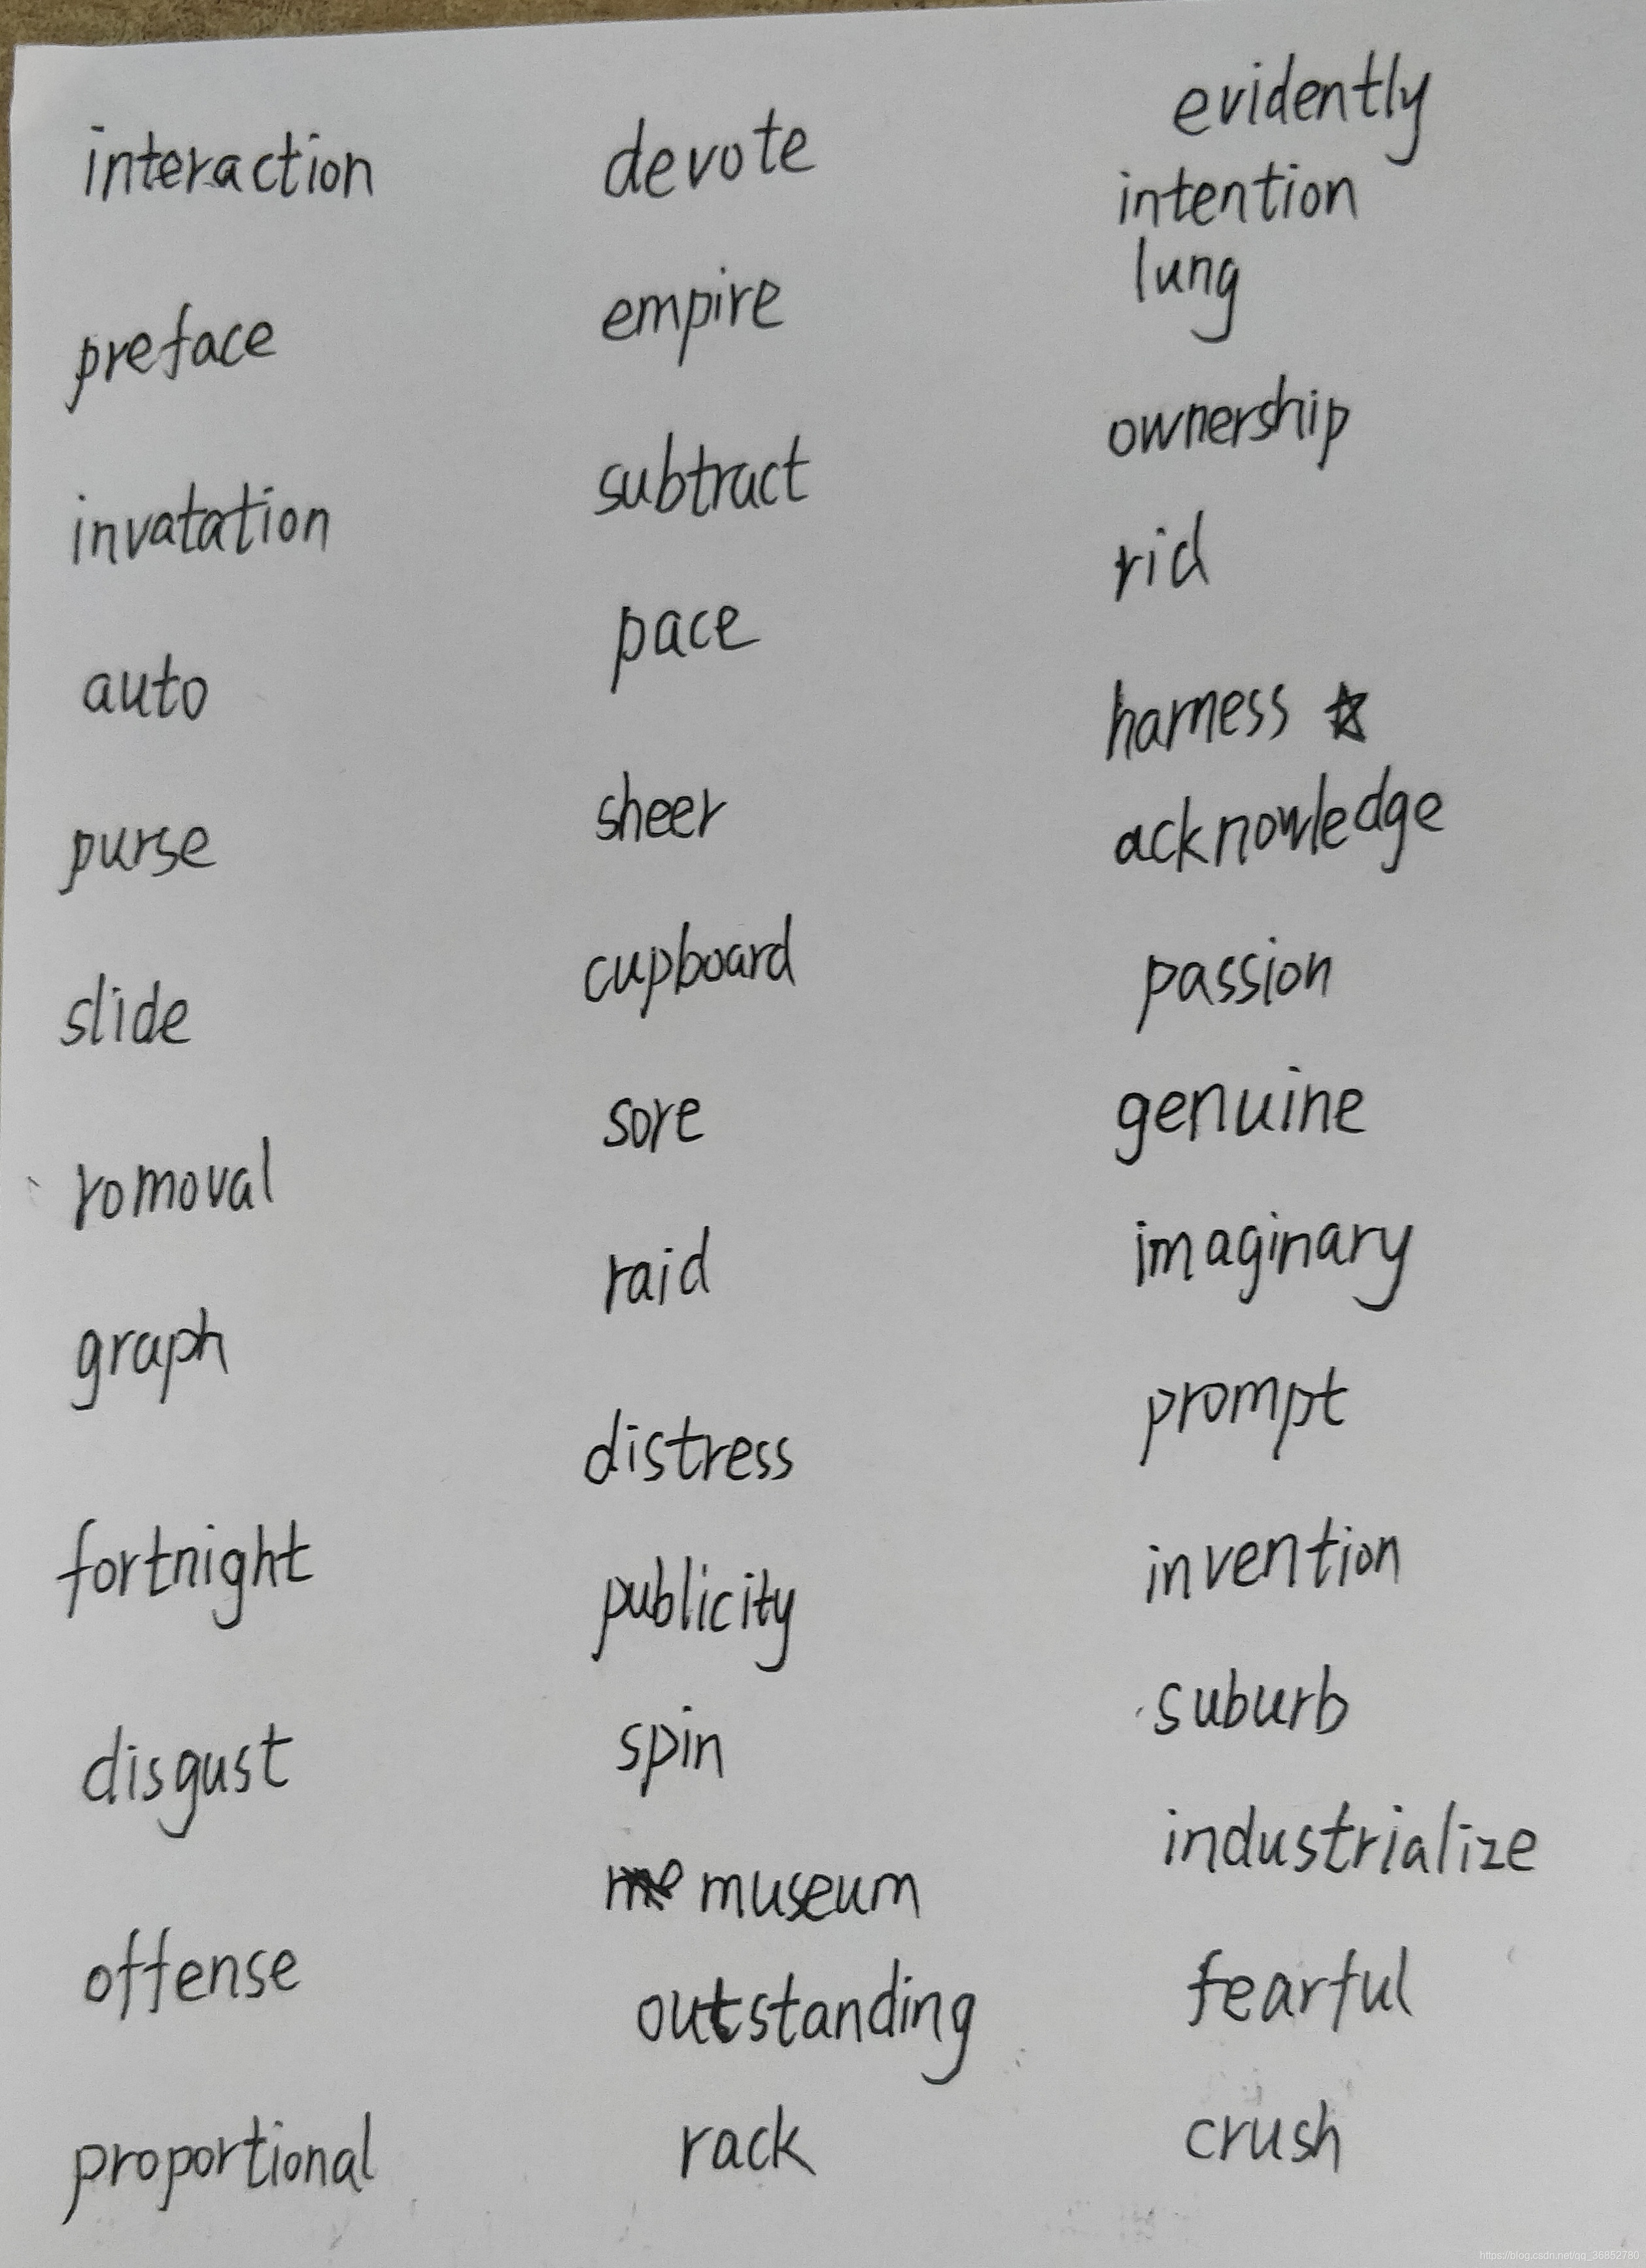 interaction
preface
invatation
auto
purse
slide
romoval
graph
fortnight
disgust
offense
proportional
devote
empire
subtract
pace
sheer
cupboard
sore
raid
distress
publicity
spin
museum
outstanding
rack
evidently
intention
lung
ownership
rid
harness ☆
acknowledge
passion
genuine
imaginary
prompt
invention
suburb
industrialize
fearful
crush
https://blog.csdn.net/qq_36852780